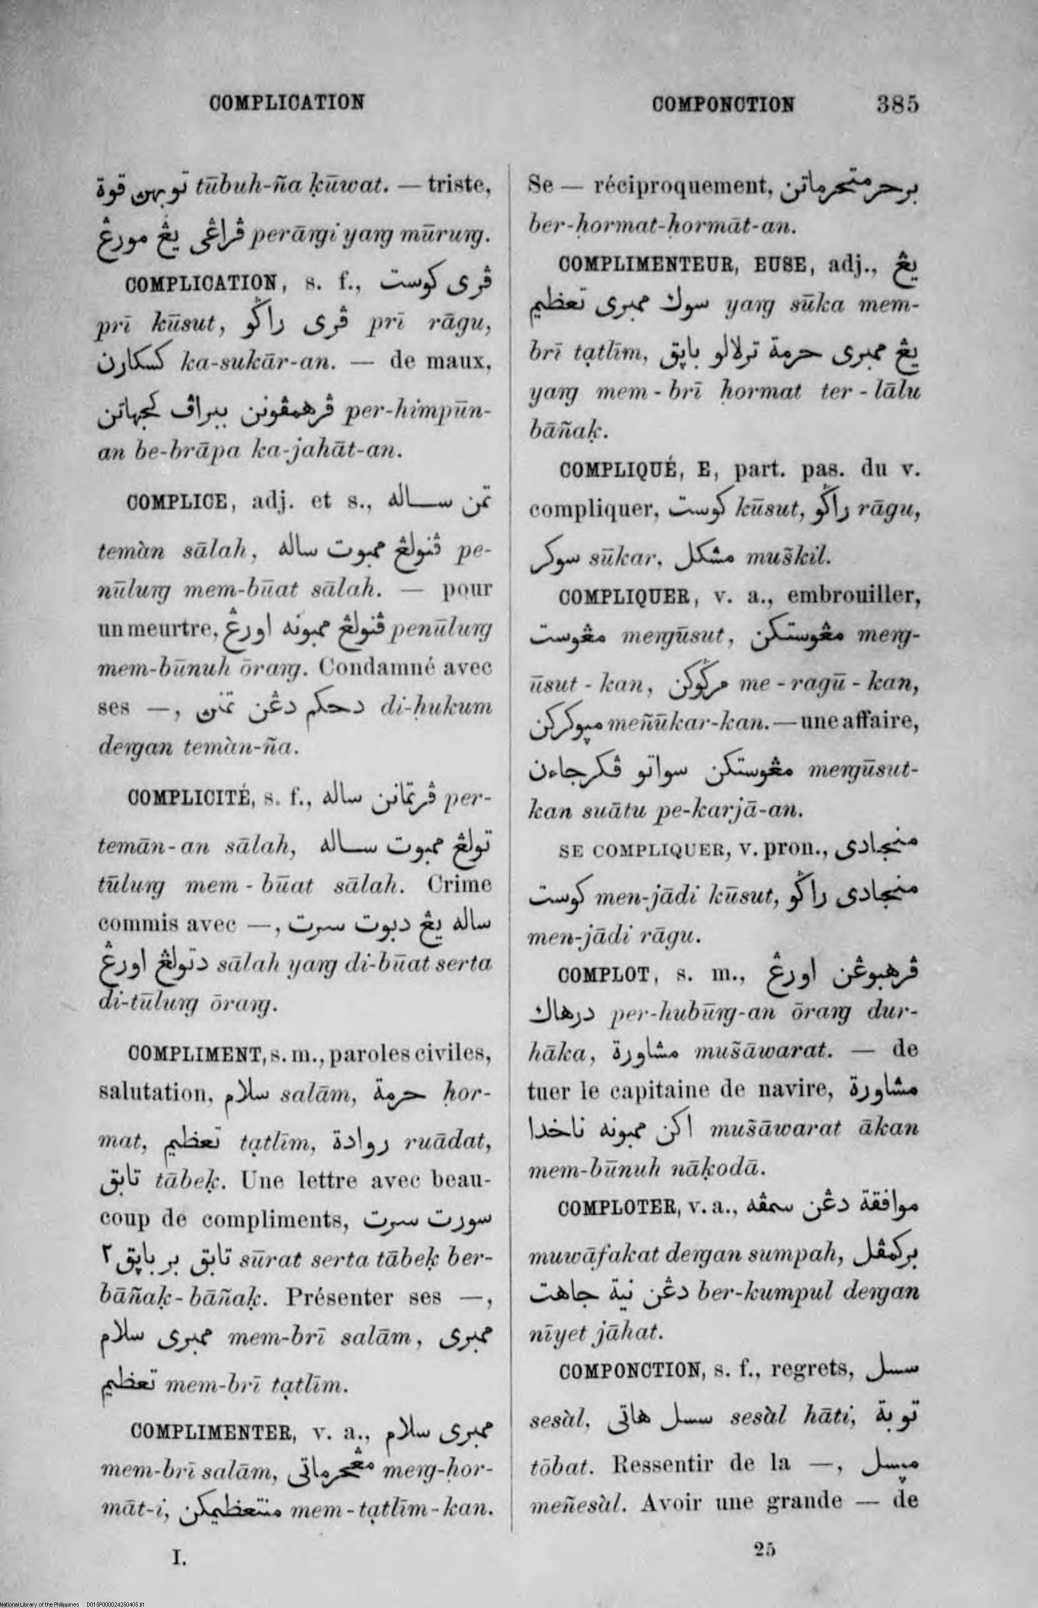 COMPLICATION
COMPONCTION 385
توبهن قوة tūbuh-ña ḳūwat. — triste,
ڤراڠي يڠ مورڠ perāṛgi yaṛg mūruṛg.
COMPLICATION, s. f., ڤري كوست
prī kūsut, ڤري راڬو prī rāgu,
كسكارن ka-sukār-an. — de maux,
ڤرهمڤونن ببراڤ كجهاتن per-himpūn-
an be-brāpa ka-jahāt-an.
COMPLICE, adj. et s., تمن ساله
temàn sālah, ڤنولڠ ممبوت ساله pe-
nūluṛg mem-būat sālah. — pour
un meurtre, ڤنولڠ ممبونه اورڠ penūluṛg
mem-būnuh ōraṛg. Condamné avec
ses —, دحكم دڠن تمنن di-ḥukum
deṛgan temàn-ña.
COMPLICITÉ, s. f., ڤرتمانن ساله per-
temān-an sālah, تولڠ ممبوت ساله
tūluṛg mem-būat sālah. Crime
commis avec —, ساله يڠ دبوت سرت
دتولڠ اورڠ sālah yaṛg di-būat serta
di-tūluṛg ōraṛg.
COMPLIMENT, s. m., paroles civiles,
salutation, سلام salām, حرمة ḥor-
mat, تعظيم tạtlīm, روادة ruādat,
تابق tābeḳ. Une lettre avec beau-
coup de compliments, سورت سرت
تابق بر باڽق٢ sūrat serta tābeḳ ber-
bāñaḳ-bāñaḳ. Présenter ses —,
ممبري سلام mem-brī salām, ممبري
تعظيم mem-brī tạtlīm.
COMPLIMENTER, v. a., ممبري سلام
mem-brī salām, مڠحرماتي meṛg-ḥor-
māt-i, منتعظيمكن mem-tạtlīm-kan.
I.
Se — réciproquement, برحرمتحرماتن
ber-ḥormat-ḥormāt-an.
COMPLIMENTEUR, EUSE, adj., يڠ
سوك ممبري تعظيم yaṛg sūka mem-
brī tạtlīm, يڠ ممبري حرمة ترلالو باڽق
yaṛg mem-brī ḥormat ter-lālu
bāñaḳ.
COMPLIQUÉ, E, part. pas. du v.
compliquer, كوست kūsut, راڬو rāgu,
سوكر sūkar, مشكل muškil.
COMPLIQUER, v. a., embrouiller,
مڠوست meṛgūsut, مڠوستكن meṛg-
ūsut-kan, مرڬوكن me-ragū-kan,
مڽوكركن meñūkar-kan. — une affaire,
مڠوستكن سواتو ڤكرجاءن meṛgūsut-
kan suātu pe-karjā-an.
SE COMPLIQUER, v. pron., منجادي
كوست men-jādi kūsut, منجادي راڬو
men-jādi rāgu.
COMPLOT, s. m., ڤرهبوڠن اورڠ
درهاك per-hubūṛg-an ōraṛg dur-
hāka, مشاورة mušāwarat. — de
tuer le capitaine de navire, مشاورة
اكن ممبونه ناخدا mušāwarat ākan
mem-būnuh nāḳodā.
COMPLOTER, v. a., موافقة دڠن سمڤه
muwāfakat deṛgan sumpah, بركمڤل
دڠن نية جاهت ber-kumpul deṛgan
nīyet jāhat.
COMPONCTION, s. f., regrets, سسل
sesàl, سسل هاتي sesàl hāti, توبة
tōbat. Ressentir de la —, مڽسل
meñesàl. Avoir une grande — de
25
National Library of the Philippines